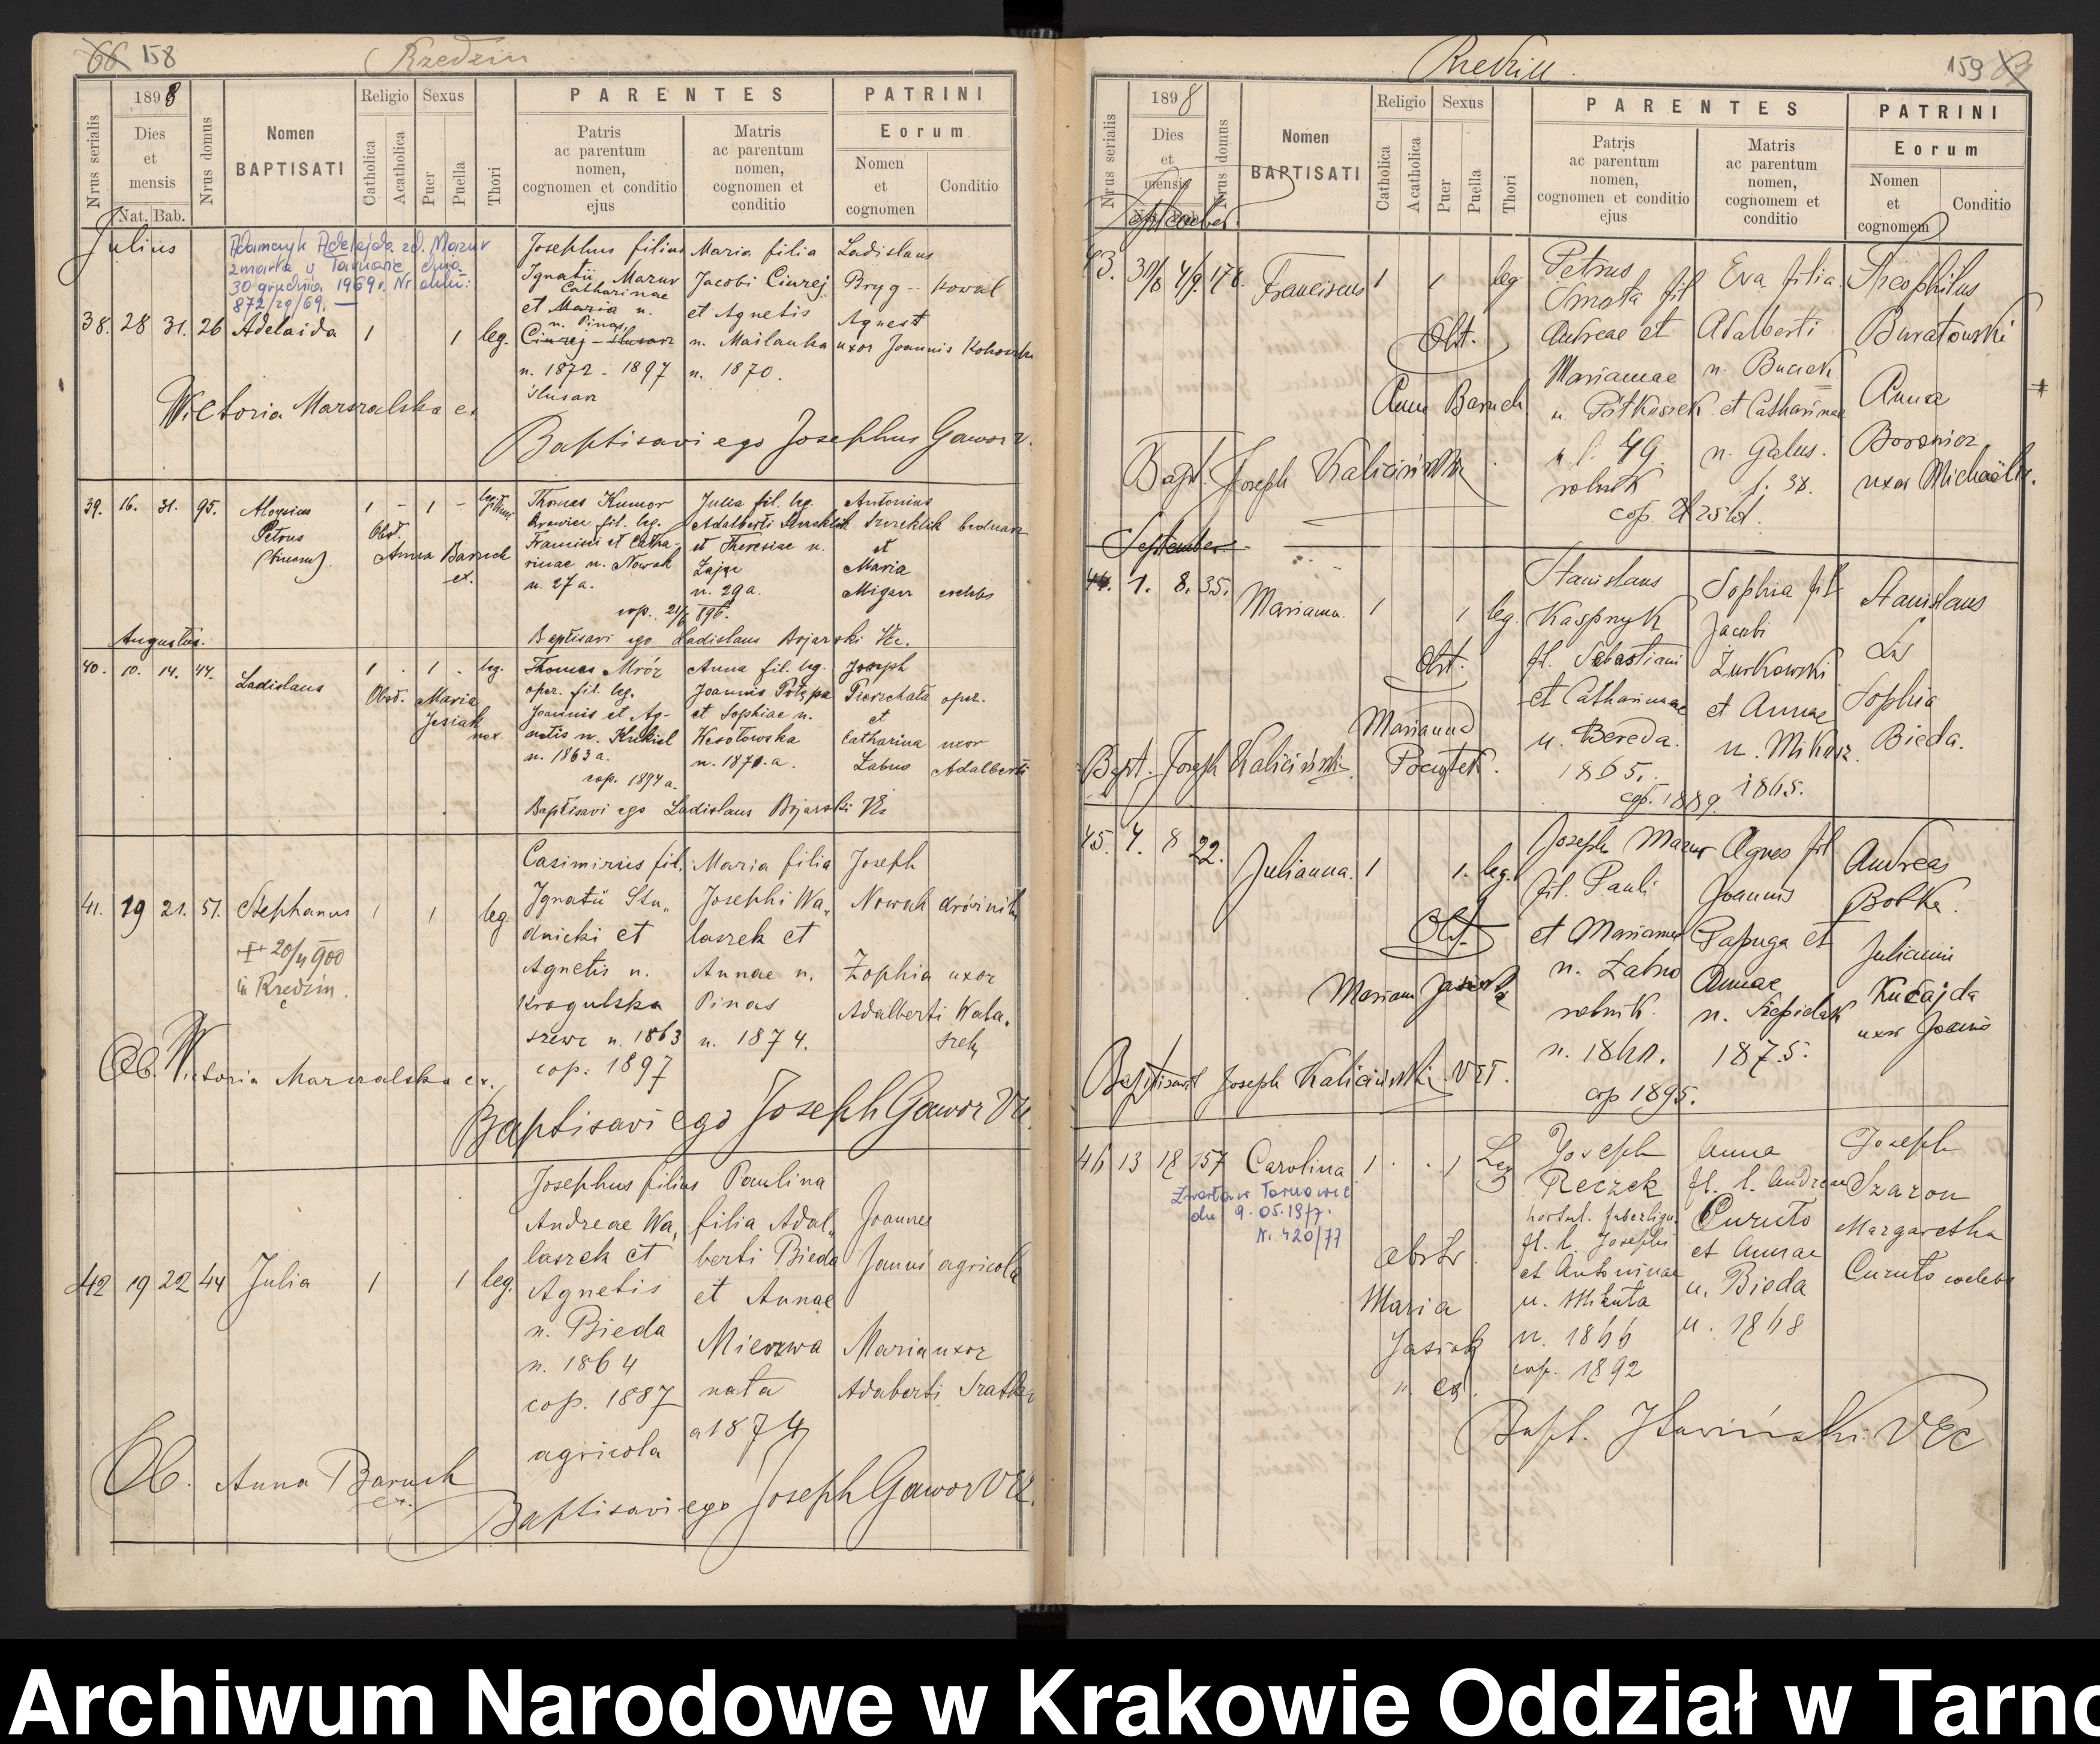 66 158
Rzedzin
1898
Nrus serialis
Dies
et
mensis
Nat. Bab.
Nrus domus
Nomen
BAPTISATI
Religio
Catholica
Acatholica
Sexus
Puer
Puella
Thori
PARENTES
Patris
ac parentum
nomen,
cognomen et conditio
ejus
Matris
ac parentum
nomen,
cognomen et
conditio
PATRINI
Eorum
Nomen
et
cognomen
Conditio
Julius
Adamczyk Adelajda zd. Mazur
zmarła w Tarnowie dnia
30 grudnia 1969 r. Nr aktu:
872/zg/69. —
38. 28 31. 26 Adelaida 1 1 leg.
Josephus filius
Ignatii Mazur
Catharinae
et Maria n.
n. Pinas,
Ciurej - ślusarz
n. 1872 - 1897
ślusarz
Maria filia
Jacobi Ciurej
et Agnetis
n. Mailanka
n. 1870.
Ladislaus
Bryg -- kowal
Agnes
uxor Joannis
Wictoria Marszalska
Baptisavi ego Josephus Gawor
39. 16. 31. 95. Aloysius
Petrus
1 - 1 -
Obst.
Anna Baruch
ex.
Thomas Kumor
krawiec fil. leg.
Francisci et Catha-
rinae n. Nowak
n. 27 a.
Julia fil. leg.
Adalberti
et Theresiae n.
Zając
n. 29 a.
Antonius
bednarz
et
Maria
Migacz coelebs
cop.
Baptisavi ego Ladislaus Bojarski
Augustus.
40. 10. 14. 44. Ladislaus 1 . 1 . leg.
Obst. Maria
Jasiak
Thomas Mróz
oper. fil. leg.
Joannis et Ag-
netis n. Kukiel
n. 1863 a.
Anna fil. leg.
Joannis Potępa
et Sophiae n.
Wesołowska
n. 1870. a.
Joseph
Pierzchała oper.
et
Catharina uxor
Łabno Adalberti
cop. 1894 a.
Baptisavi ego Ladislaus Bojarski
41. 19 21. 51. Stephanus 1 1 leg.
20/4 900
in Rzedzin.
Casimirus fil.
Ignatii Stu„
dnicki et
Agnetis n.
Krogulska
szewc n. 1863
cop. 1897
Maria filia
Josephi Wa„
laszek et
Annae n.
Pinas
n. 1874.
Joseph
Nowak dróżnik
Zophia uxor
Adalberti Wala„
szek
Ob. Wictoria Marszalska ex.
Baptisavi ego Joseph Gawor
42 19 22 44 Julia 1 1 leg.
Josephus filius
Andreae Wa„
laszek et
Agnetis
n. Bieda
n. 1864
cop. 1887
agricola
Paulina
filia Adal„
berti Bieda
et Annae
Mierzwa
nata
a 1874
Joannes
Januś agricola
Maria uxor
Adaberti
Ob. Anna Baruch
ex.
Baptisavi ego Joseph Gawor
159
Rzedzin
1898
Nrus serialis
Dies
et
mensis
Nrus domus
Nomen
BAPTISATI
Religio
Catholica
Acatholica
Sexus
Puer
Puella
Thori
PARENTES
Patris
ac parentum
nomen,
cognomen et conditio
ejus
Matris
ac parentum
nomen,
cognomem et
conditio
PATRINI
Eorum
Nomen
et
cognomem
Conditio
September
43. 31/8 4/9. 178. Franciscus 1 1 leg
Obst.
Anna Baruch
Petrus
Smoła fil
Andreae et
Mariannae
n.
n. l. 49.
rolnik
Eva filia
Adalberti
n. Buciek
et Catharinae
n. Galus.
l. 38.
Theophilus
Buratowski
Anna
uxor Michaelis.
Bapt. Joseph Kaliciński
cop.
September
44. 1. 8. 35. Marianna. 1 1 leg.
Obst.
Marianna
Początek.
Stanislaus
Kasprzyk
fil. Sebastiani
et Catharinae
n. Bereda.
1865.
cop. 1889.
Sophia fil
Jacobi
Żurkowski
et Annae
n. Mikosz.
1865.
Stanislaus
Lis
Sophia
Bieda.
Bapt. Joseph Kaliciński
45. 4. 8 22. Julianna. 1 1. leg.
Obst.
Joseph Mazur
fil. Pauli
et Mariannae
n. Łabno
rolnik.
cop 1895.
Agnes fil
Joannis
Papuga et
Annae
n.
1875.
Andreas
Julianna
uxor Joannis
Baptisavit Joseph Kaliciński
46 13 18 157 Carolina 1 . . 1 Leg
Zmarła w Tarnowie
dn. 9. 05. 1977.
Nr. 420/77
Obstr.
Maria
Jasiak
ex.
Joseph
Reczek
fil. l. Josephi
et Antoninae
n. Mikuta
n. 1866
cop. 1892
Anna
fil. l. Andreae
Curuło
et Annae
n. Bieda
n. 1868
Joseph
Szaron
Margaretha
Curuło coelebs
Bapt.
Archiwum Narodowe w Krakowie Oddział w Tarno